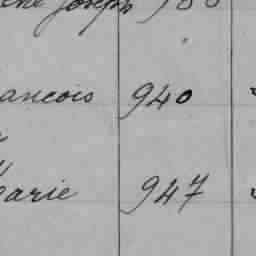 Joseph
ancois 940
arie 947